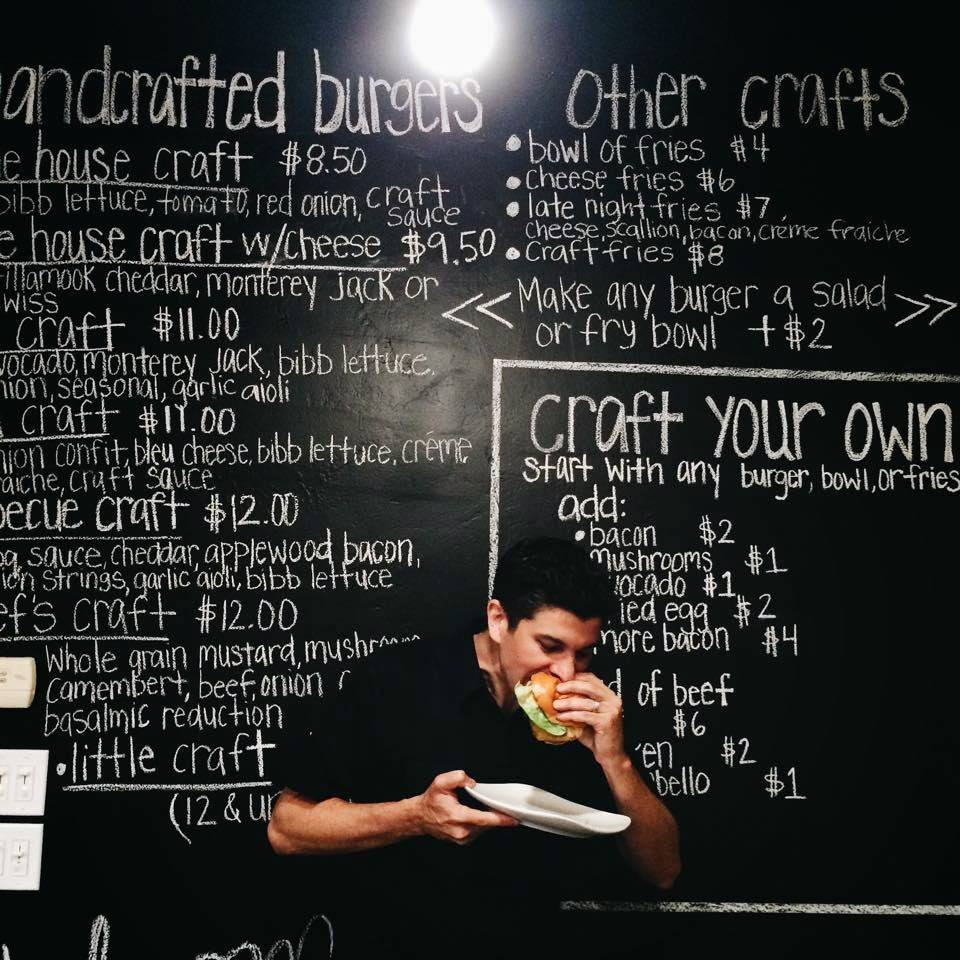 andcrafted burgers
e house craft $8.50
bibb lettuce, tomato, red onion, craft
sauce
e house craft w/cheese $9.50
tillamook cheddar, monterey jack or
wiss
craft $11.00
vocado, monterey jack, bibb lettuce,
nion, seasonal, garlic aioli
craft $11.00
nion confit, bleu cheese, bibb lettuce, créme
raiche, craft sauce
becue craft $12.00
bq sauce, cheddar, applewood bacon,
ion strings, garlic aioli, bibb lettuce
ef's craft $12.00
Whole grain mustard, mushroom
Camembert, beef, onion
basalmic reduction
•little craft
(12 & un
Other crafts
•bowl of fries $4
•cheese fries $6
•late night fries $7
cheese, scallion, bacon, créme fraiche
•Craft fries $8
<< Make any burger a salad >>
or fry bowl +$2
Craft your own
start with any burger, bowl, or fries
add:
•bacon $2
mushrooms $1
vocado $1
ied egg $2
more bacon $4
d of beef
$6
en $2
bello $1